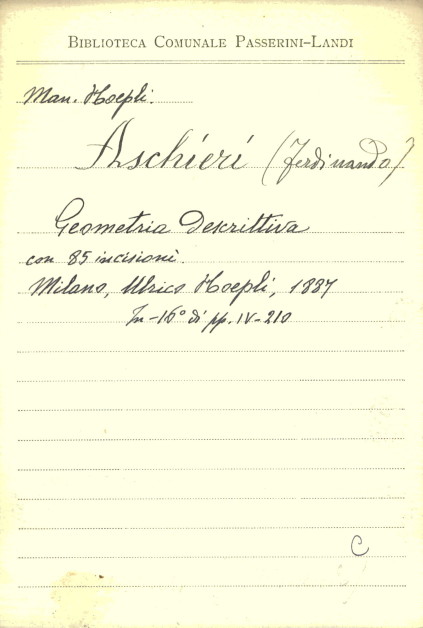 BIBLIOTECA COMUNALE PASSERINI-LANDI
Man. Hoepli.
Aschieri (Ferdinando)
Geometria Descrittiva
con 85 incisioni.
Milano, Ulrico Hoepli, 1887
In-16° di pp. IV-210
C